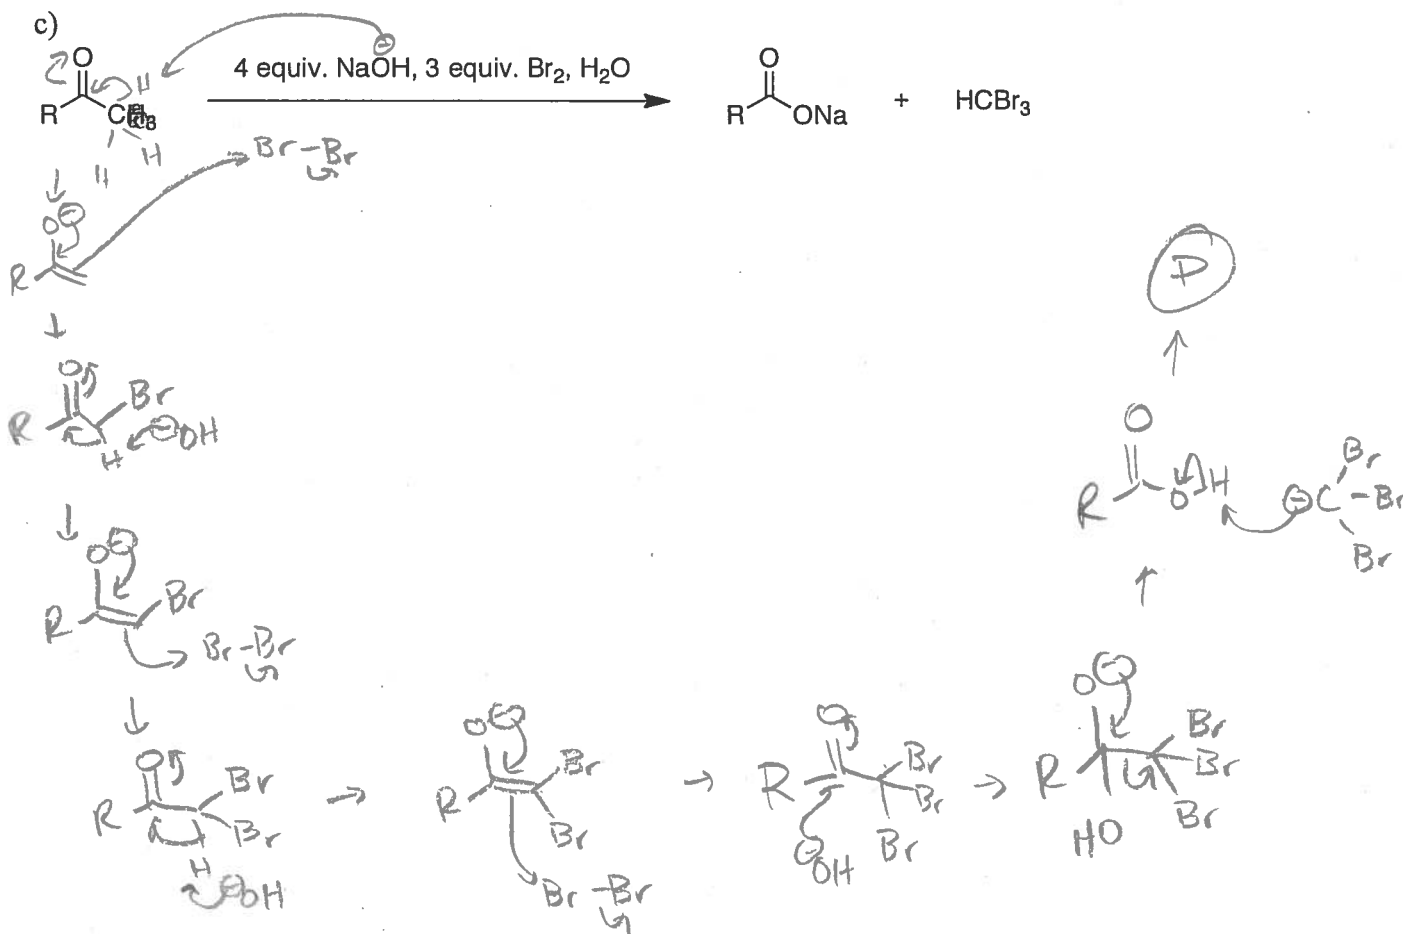 c)
O
R
H
H
H
4 equiv. NaOH, 3 equiv. Br₂, H₂O
O
R ONa
+
HCBr₃
Br-Br
O⊖
R
O
R Br
H ⊖OH
O⊖
R Br
Br-Br
O
R Br
Br
H
⊖OH
O⊖
R Br
Br
Br-Br
O
R Br
Br
Br
⊖OH
O⊖
R Br
Br
Br
HO
O
R O H
⊖C Br
-Br
Br
P